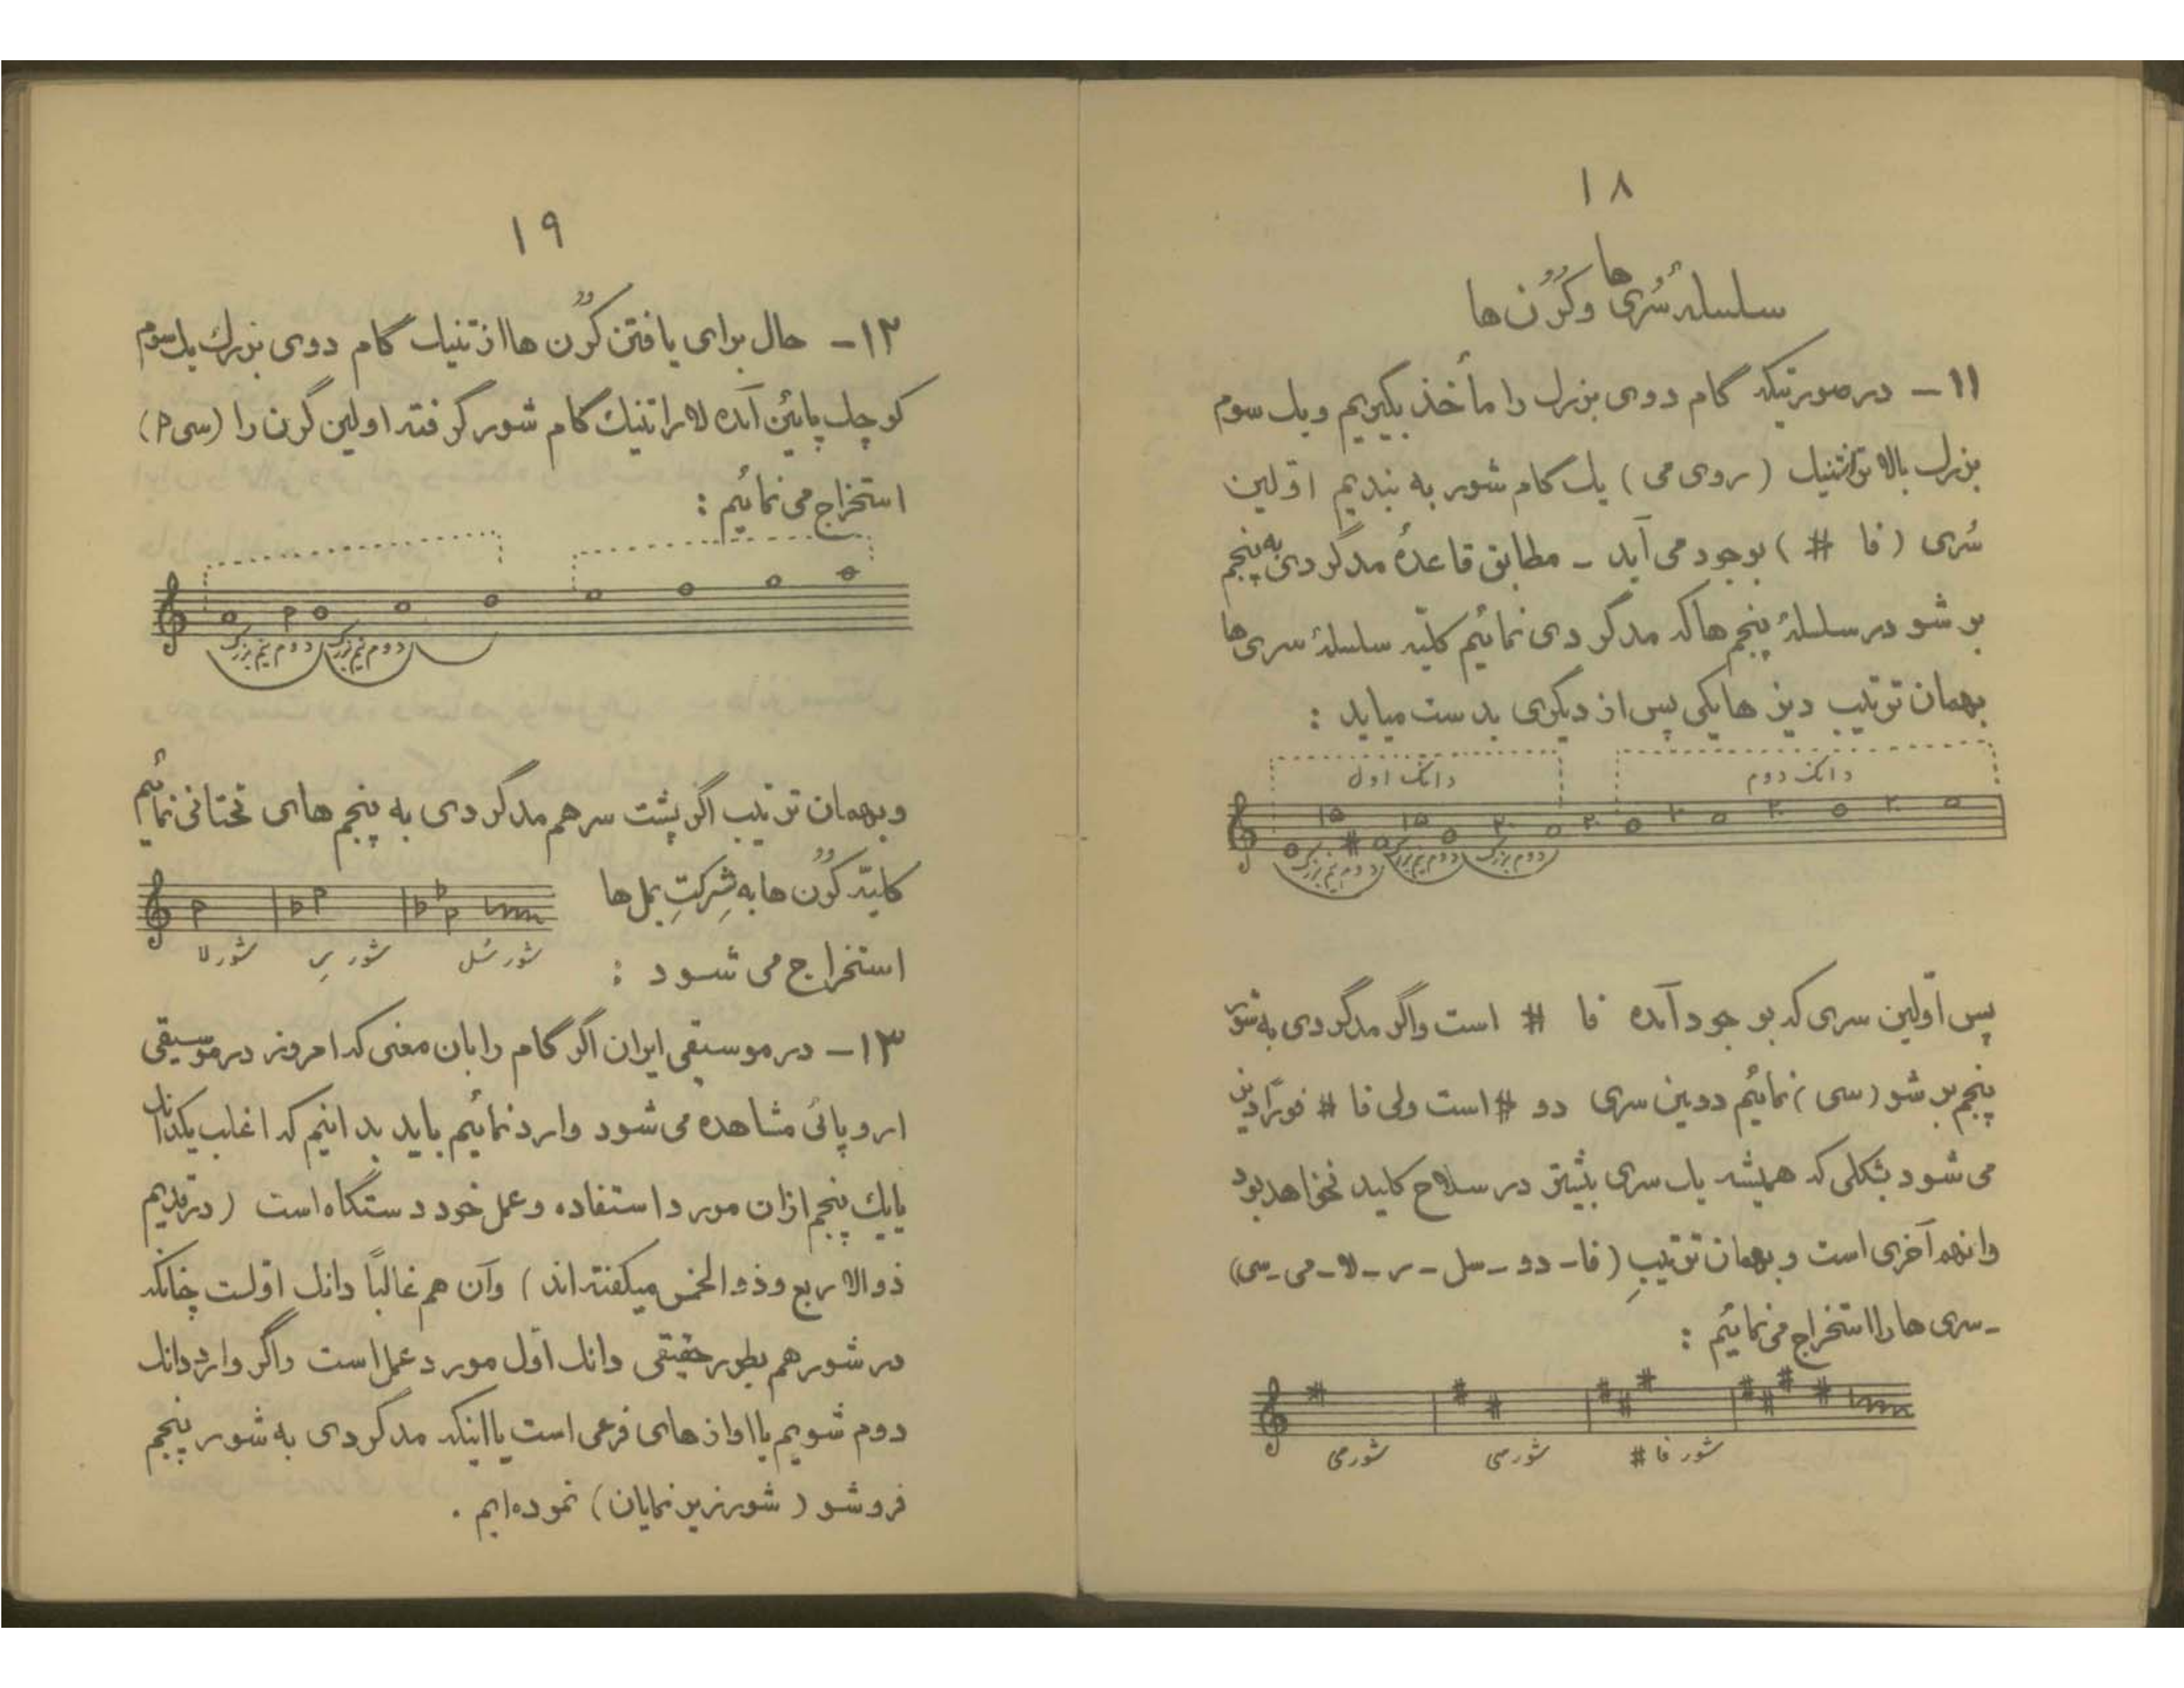 ۱۸
سلسلهٔ سُری ها و کُرُن ها
۱۱ – در صورتیکه گام دوی بزرک را مأخذ بگیریم و یک سوم
بزرک بالا تر از تنیک ( روی می ) یک کام شور به بندیم اوّلین
سُری ( فا # ) بوجود می آید – مطابق قاعدهٔ مدگردی به پنجم
بر شو در سلسلهٔ پنجم ها که مدگردی نمائیم کلّیه سلسلهٔ سری ها
بهمان ترتیب دیز ها یکی پس از دیگری بدست میاید :
دانک اول
دانک دوم
دوم نیم بزرک
دوم نیم بزرک
دوم بزرک
پس اوّلین سری که بوجود آمده فا # است و اگر مدگردی به شور
پنجم بر شو ( سی ) نمائیم دومین سری دو # است ولی فا # فوراً دیز
می شود بشکلی که همیشه یک سری بیشتر در سلاح کلید نخواهد بود
و انهم آخری است و بهمان ترتیبِ ( فا – دو – سل – ر – لا – می – سی )
– سری ها را استخراج می نمائیم :
شور می
شور سی
شور فا #
۱۹
۱۲ – حال برای یافتن کُرُن ها از تنیک گام دوی بزرک یک سوم
کوچک پایئن آمده لا را تنیک گام شور گرفته اولین کرن را ( سی p )
استخراج می نمائیم :
دوم نیم بزرک
دوم نیم بزرک
و بهمان ترتیب اگر پشت سر هم مدگردی به پنجم های تحتانی نمائیم
کلیّه کُرُن ها به شِرکتِ بمل ها
استخراج می شود :
شور لا
شور رِ
شور سُل
۱۳ – در موسیقی ایران اگر گام را بان معنی که امروز در موسیقی
اروپائی مشاهده می شود وارد نمائیم باید بدانیم که اغلب یکدانک
یا یک پنجم ازان مورد استفاده و عمل خود دستگاه است ( در قدیم
ذوالاربع و ذوالخمس میگفته اند ) و آن هم غالباً دانک اوّلست چنانکه
در شور هم بطور حقیقی دانک اوّل مورد عمل است و اگر وارد دانک
دوم شویم یا اواز های فرعی است یا اینکه مدگردی به شور پنجم
فرو شو ( شور زیر نمایان ) نموده ایم .